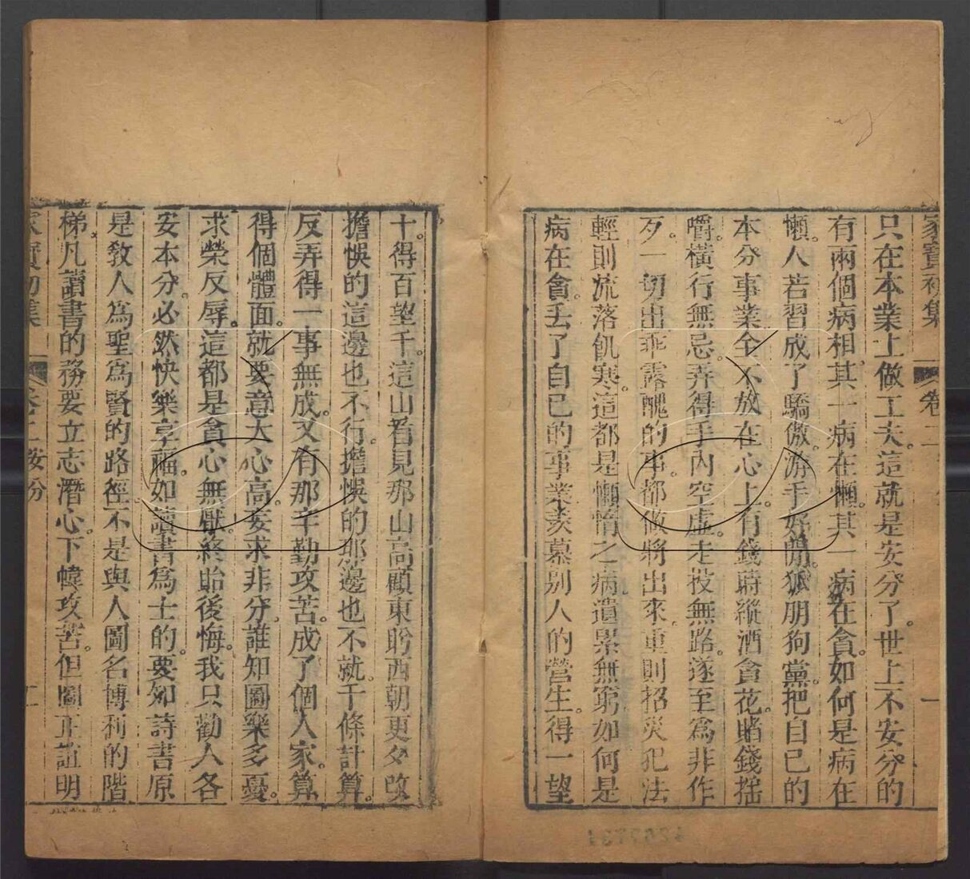 家寶初集
卷二
一
只在本業上做工夫。這就是安分了。世上不安分的
有兩個病相。其一病在懶。其 病在貪。如何是病在
懶。人若習成了驕傲。游手好閒。狐朋狗黨。把自己的
本分事業。全不放在心上。有錢時縱酒貪花。賭錢
嚼。橫行無忌。弄得手內空虛。走投無路。遂至為非作
歹。一切出乖露醜的事。都做將出來。重則招災犯法
輕則流落飢寒。這都是懶惰之病。遺累無窮。如何是
病在貪。丟了自己的事業。羨慕別人的營生。得一望
十。得百望千。這山看見那山高。顧東盼西。朝更夕改
擔悞的這邊也不行。擔悞的那邊也不就。千條計算。
反弄得一事無成。又有那辛勤攻苦。成了個人家。算
得個體面。就要意大心高。妄求非分。誰知圖樂多憂。
求榮反辱。這都是貪心無厭。終貽後悔。我只勸人各
安本分。必然快樂享福。如讀書為士的。要知詩書原
是敎人為聖為賢的路徑。不是與人圖名博利的階
梯。凡讀書的務要立志潛心。下幃攻苦。但圖正誼明
家寶初集
卷二 安分